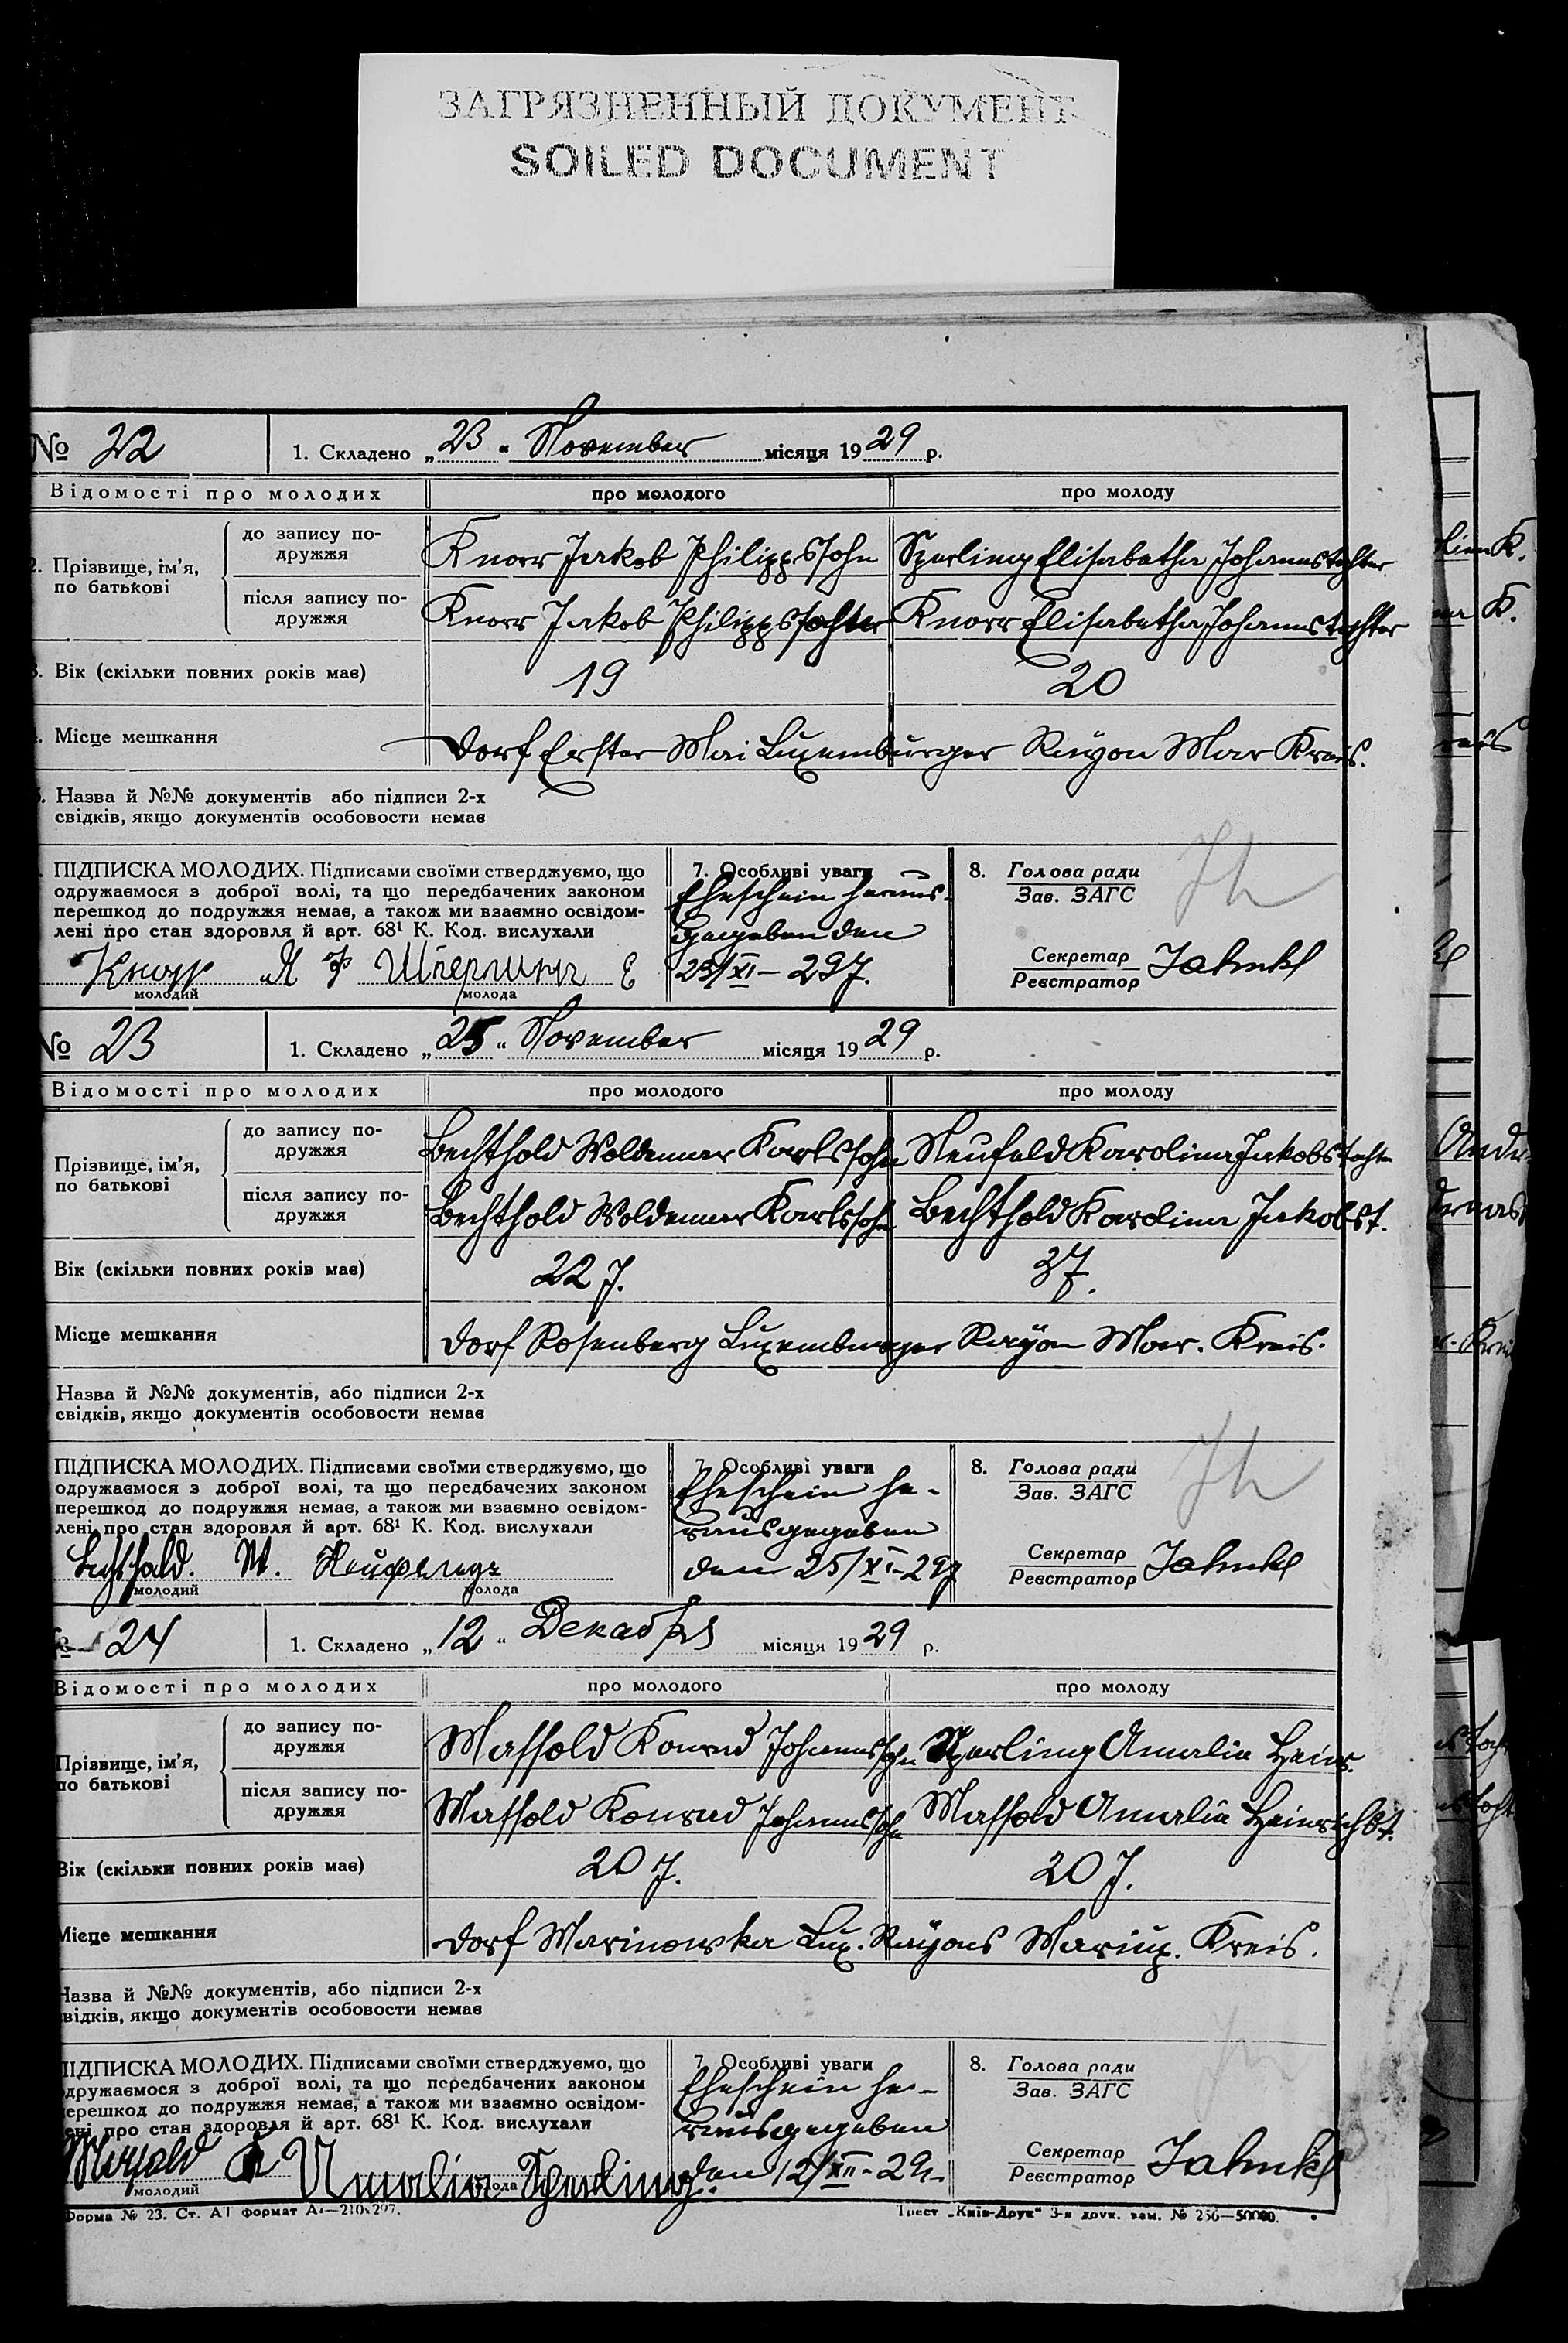 ЗАГРЯЗНЕННЫЙ ДОКУМЕНТ
SOILED DOCUMENT
№ 22 1. Складено „23“ November місяця 1929 р.
Відомості про молодих про молодого про молоду
2. Прізвище, ім’я, по батькові
до запису подружжя Knorr Jakob Philippssohn Sperling Elisabetha Johannestochter
після запису подружжя Knorr Jakob Philippstochter Knorr Elisabetha Johannestochter
3. Вік (скільки повних років має) 19 20
4. Місце мешкання Dorf Erster Mai Luxemburger Rayon Mar Kreis.
5. Назва й №№ документів або підписи 2-х
свідків, якщо документів особовости немає
ПІДПИСКА МОЛОДИХ. Підписами своїми стверджуємо, що
одружаємося з доброї волі, та що передбачених законом
перешкод до подружжя немає, а також ми взаємно освідом-
лені про стан здоровля й арт. 68¹ К. Код. вислухали
Кнорр Я Ф Шперлинг Е
молодий молода
7. Особливі уваги
Eheschein heraus-
gegeben den
23/XI–29 J.
8. Голова ради
Зав. ЗАГС
Секретар
Реєстратор
№ 23 1. Складено „25“ November місяця 1929 р.
Відомості про молодих про молодого про молоду
Прізвище, ім’я, по батькові
до запису подружжя Bechthold Woldemar Karlssohn Neufeld Karolina Jakobstocht
після запису подружжя Bechthold Woldemar Karlssohn Bechthold Karolina Jakobst.
Вік (скільки повних років має) 22 J. 37.
Місце мешкання Dorf Rosenberg Luxemburger Rayon Mar. Kreis.
Назва й №№ документів, або підписи 2-х
свідків, якщо документів особовости немає
ПІДПИСКА МОЛОДИХ. Підписами своїми стверджуємо, що
одружаємося з доброї волі, та що передбачених законом
перешкод до подружжя немає, а також ми взаємно освідом-
лені про стан здоровля й арт. 68¹ К. Код. вислухали
Bechthold. W. Нейфельдъ
молодий молода
7. Особливі уваги
Eheschein he-
rausgegeben
den 25/XI–29 J
8. Голова ради
Зав. ЗАГС
Секретар
Реєстратор
№ 24 1. Складено „12“ Декабря місяця 1929 р.
Відомості про молодих про молодого про молоду
Прізвище, ім’я, по батькові
до запису подружжя Massold Konrad Johannssohn Sperling Amalia Heinr.
після запису подружжя Massold Konrad Johannssohn Massold Amalia Heinrichst.
Вік (скільки повних років має) 20 J. 20 J.
Місце мешкання Dorf Marinowka Lux. Rayons Mariup. Kreis.
Назва й №№ документів, або підписи 2-х
свідків, якщо документів особовости немає
ПІДПИСКА МОЛОДИХ. Підписами своїми стверджуємо, що
одружаємося з доброї волі, та що передбачених законом
перешкод до подружжя немає, а також ми взаємно освідом-
лені про стан здоровля й арт. 68¹ К. Код. вислухали
Amalia Sperling.
молодий молода
7. Особливі уваги
Eheschein he-
rausgegeben
den 12/XII–29
8. Голова ради
Зав. ЗАГС
Секретар
Реєстратор
Форма № 23. Ст. А1 формат А4—210x297. Трест „Київ-Друк“ 3-я друк. зам. № 256—50000.